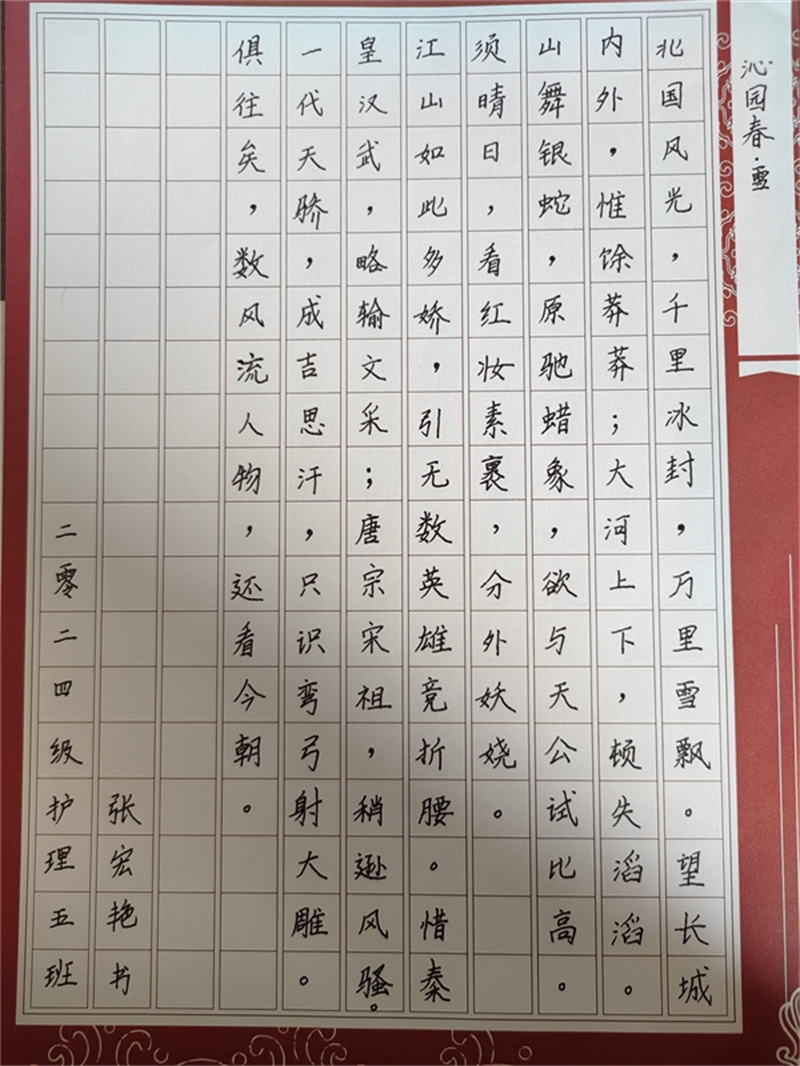 沁园春·雪
北国风光，千里冰封，万里雪飘。望长城
内外，惟馀莽莽；大河上下，顿失滔滔。
山舞银蛇，原驰蜡象，欲与天公试比高。
须晴日，看红妆素裹，分外妖娆。
江山如此多娇，引无数英雄竞折腰。惜秦
皇汉武，略输文采；唐宗宋祖，稍逊风骚。
一代天骄，成吉思汗，只识弯弓射大雕。
俱往矣，数风流人物，还看今朝。
张宏艳书
二零二四级护理五班